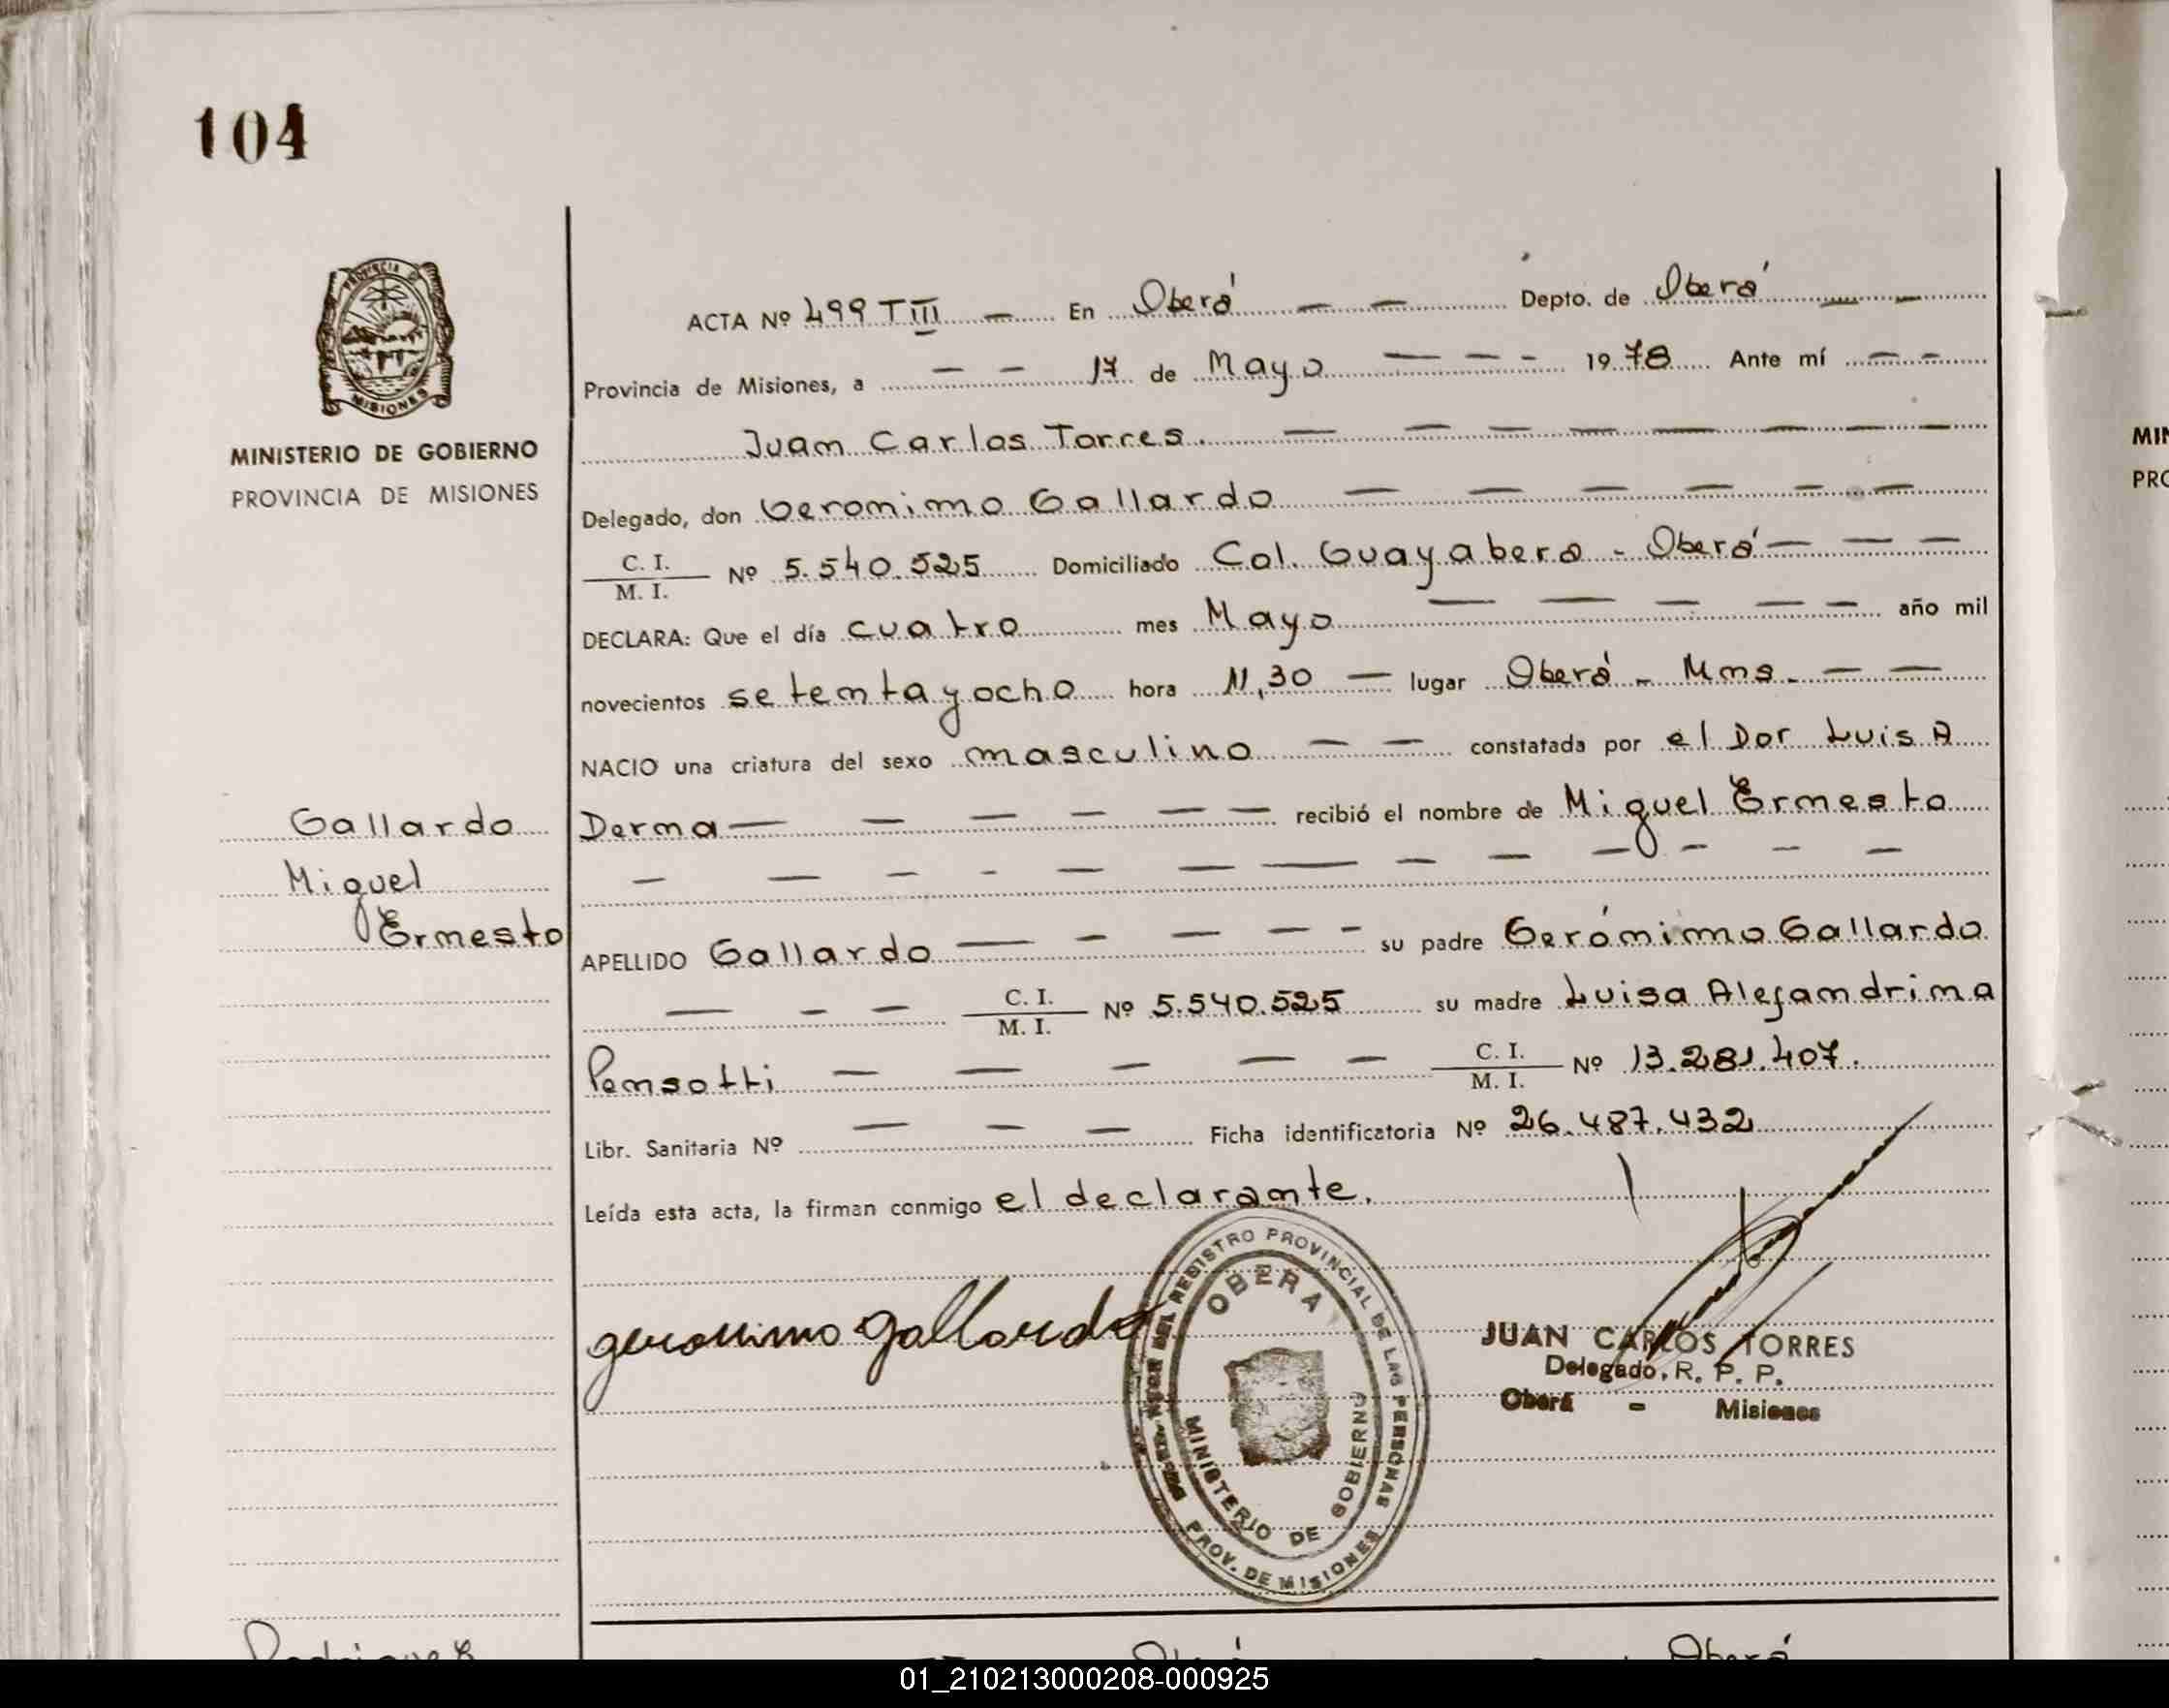 104
PROVINCIA D
MISIONES
MINISTERIO DE GOBIERNO
PROVINCIA DE MISIONES
Gallardo
Miguel
Ernesto
ACTA Nº 499 T III — En Oberá — — Depto. de Oberá — —
Provincia de Misiones, a — — 17 de Mayo — — — 1978 Ante mí — —
Juan Carlos Torres. — — — — — — — —
Delegado, don Geronimo Gallardo — — — — — —
C. I.
M. I. Nº 5.540.525 Domiciliado Col. Guayabera - Oberá — — —
DECLARA: Que el día cuatro mes Mayo — — — — — año mil
novecientos setenta y ocho hora 11,30 — lugar Oberá - Mns. — —
NACIO una criatura del sexo masculino — — constatada por el Dor Luis A
Derna — — — — — — recibió el nombre de Miguel Ernesto
— — — — — — — — — — — — —
APELLIDO Gallardo — — — — — su padre Gerónimo Gallardo
— — — C. I.
M. I. Nº 5.540.525 su madre Luisa Alejandrina
Pensotti — — — — — C. I.
M. I. Nº 13.281.407.
Libr. Sanitaria Nº — — — Ficha identificatoria Nº 26.487.432
Leída esta acta, la firman conmigo el declarante.
geronimo gallardo
REGISTRO PROVINCIAL DE LAS PERSONAS
OBERA
MINISTERIO DE GOBIERNO
PROV. DE MISIONES
JUAN CARLOS TORRES
Delegado, R. P. P.
Oberá - Misiones
Rodriguez
Oberá
Oberá
MIN
PRO
01_210213000208-000925